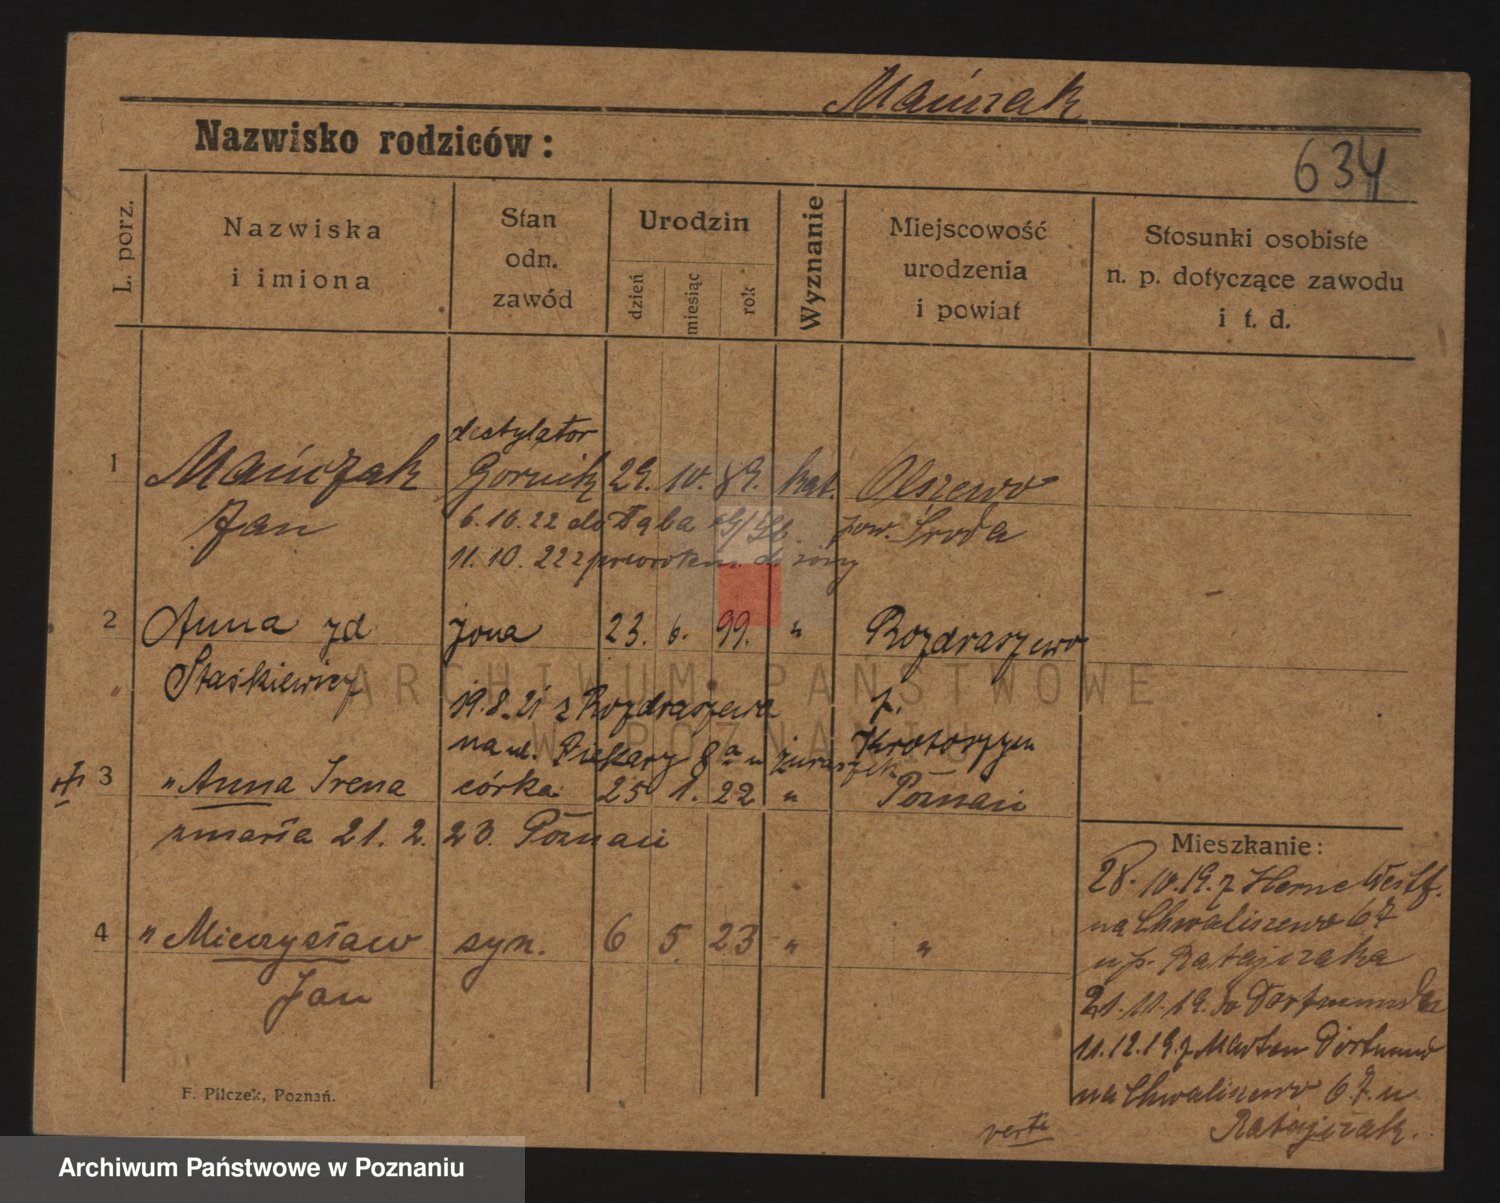 Mańczak
Nazwisko rodziców:
634
L. porz.
Nazwiska
i imiona
Stan
odn.
zawód
Urodzin
dzień
miesiąc
rok
Wyznanie
Miejscowość
urodzenia
i powiat
Stosunki osobiste
n. p. dotyczące zawodu
i t. d.
destylator
1 Mańczak Gornik 29. 10. 89. kat. Olszewo
Jan 6.10.22 do Dąba pow. Środa
11.10.22 z powrotem do żony
2 Anna zd żona 23. 6. 99. " Rozdraszewo
Staśkiewicz
19.8.21 z Rozdraszewa p.
na ul. Piekary 8a u Krotoszyn
3 " Anna Irena córka 25 1. 22 " Poznań
zmarła 21. 2. 23. Poznań
4 " Mieczysław syn. 6 5. 23 " "
Jan
Mieszkanie:
28. 10.19. z Herne Westf.
na Chwaliszewo 67
u p. Ratajczaka
21.11.19. do Dortmunda
11.12.19. z Marten Dortmund
na Chwaliszewo 67. u
Ratajczak.
verte
F. Pilczek, Poznań.
ARCHIWUM PAŃSTWOWE
W POZNANIU
Archiwum Państwowe w Poznaniu